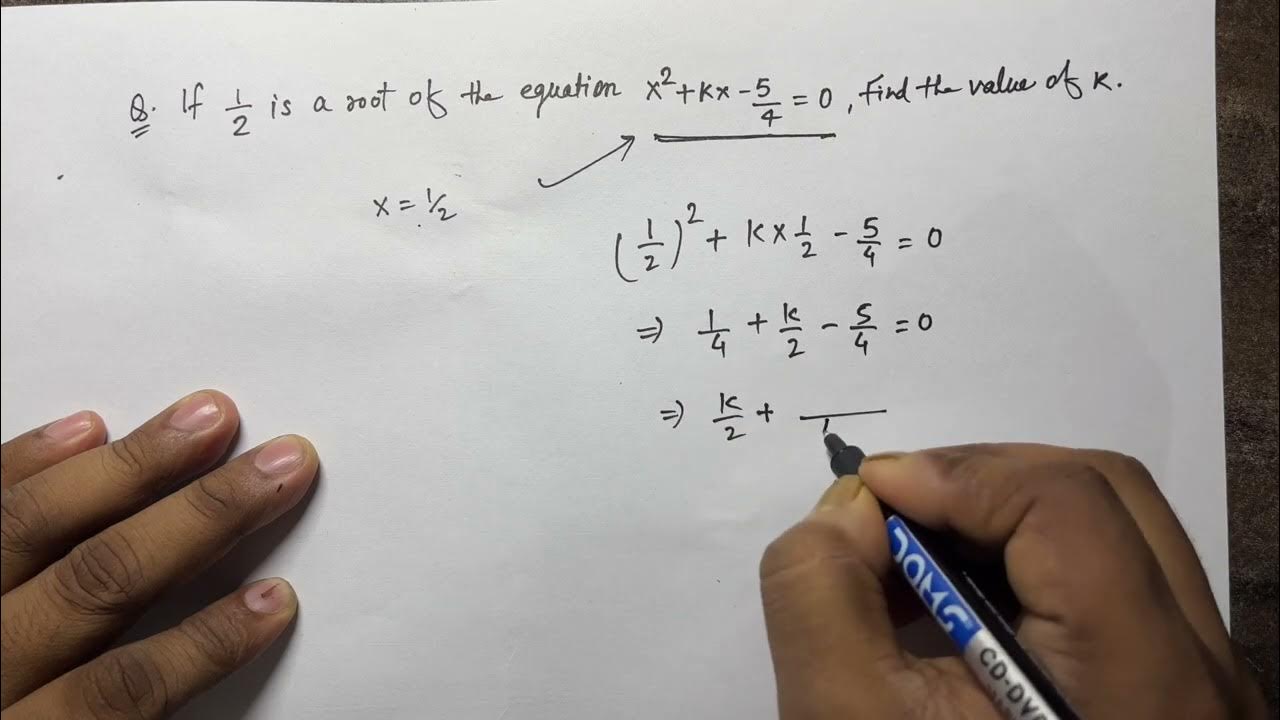 Q. If 1/2 is a root of the equation x² + kx - 5/4 = 0, Find the value of k.
x = 1/2
(1/2)² + k × 1/2 - 5/4 = 0
⇒ 1/4 + k/2 - 5/4 = 0
⇒ k/2 +
DOMS
CD-DV